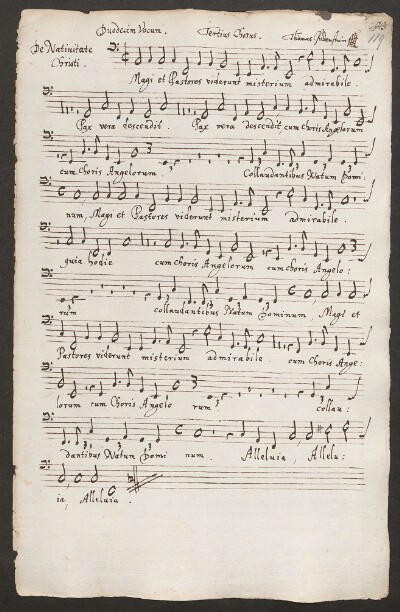 Duodecim Vocum. Tertius Chorus. Thomas
119
De Nativitate
Christi.
Magi et Pastores viderunt misterium admirabile.
Pax vera descendit. Pax vera descendit cum Choris Angelorum
cum Choris Angelorum. Collaudantibus Natum Domi:
num, Magi et Pastores viderunt misterium admirabile.
quia hodie cum Choris Angelorum cum Choris Angelo:
rum collaudantibus Natum Dominum, Magi et
Pastores viderunt misterium admirabile. cum Choris Ange:
lorum cum Choris Angelo rum collau:
dantibus Natum Domi num. Alleluia, Allelu:
ia, Alleluia.